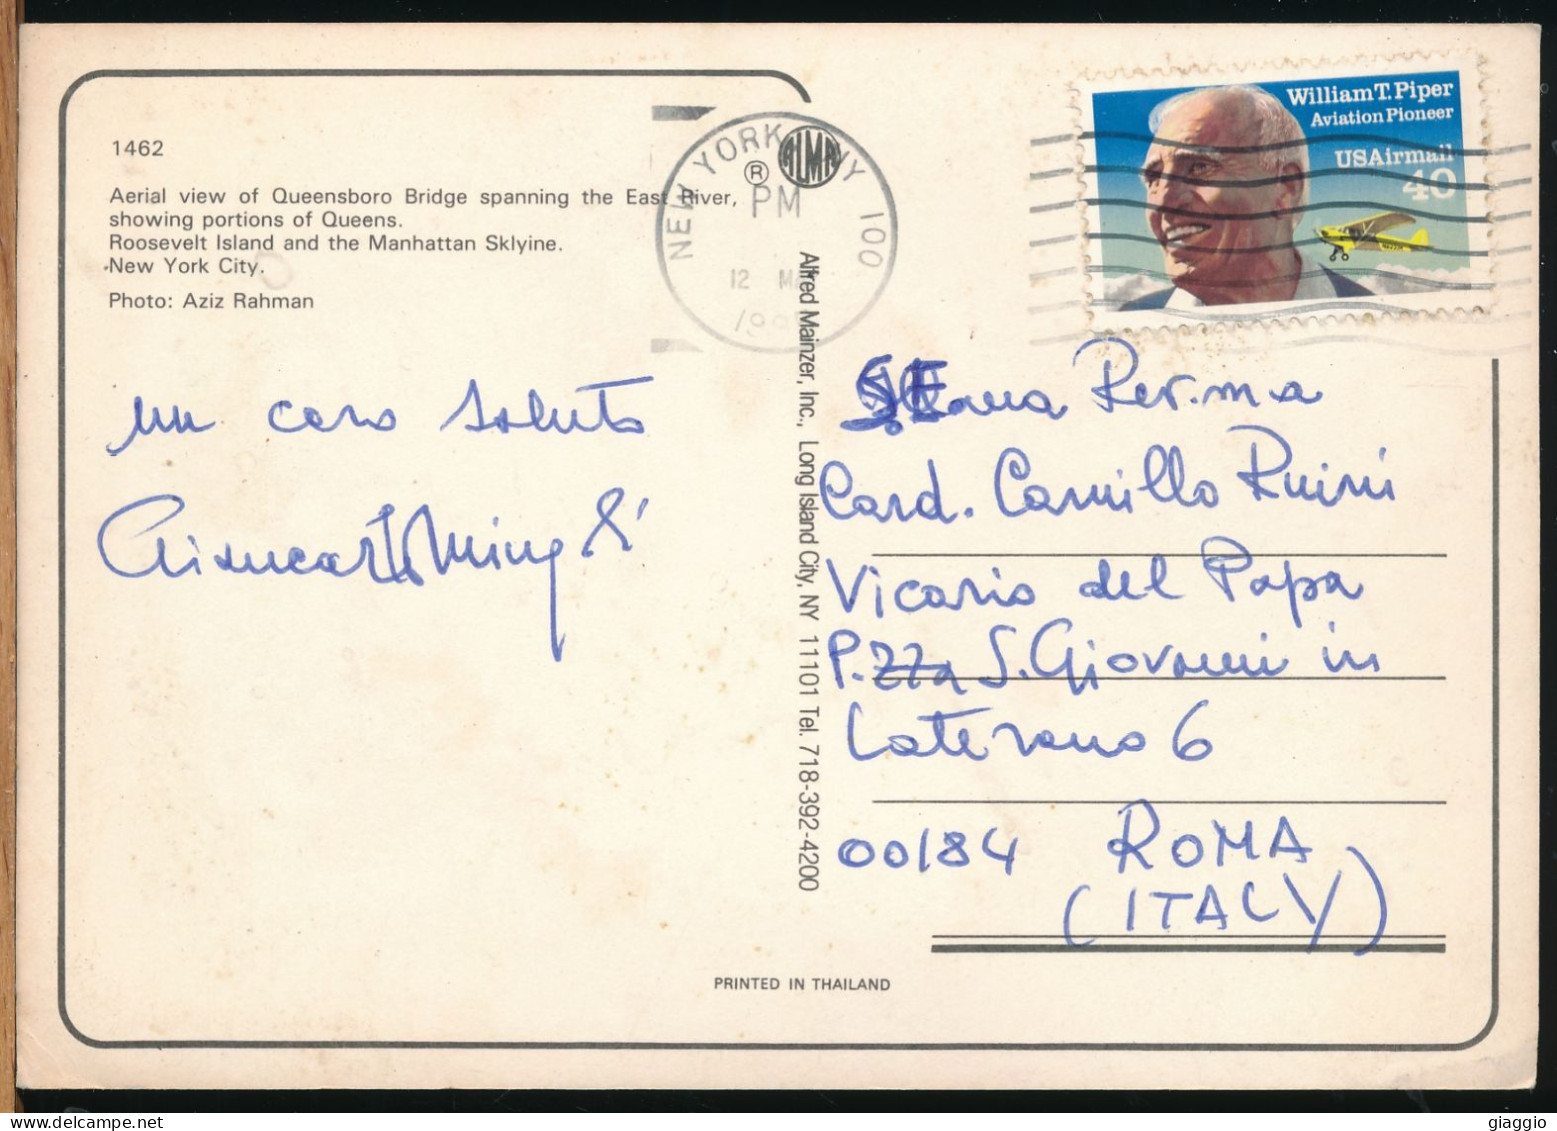 1462
Aerial view of Queensboro Bridge spanning the East River,
showing portions of Queens.
Roosevelt Island and the Manhattan Sklyine.
New York City.
Photo: Aziz Rahman
un caro saluto
NEW YORK NY 100
PM
12
ALMA
®
Alfred Mainzer, Inc., Long Island City, NY 11101 Tel. 718-392-4200
William T. Piper
Aviation Pioneer
USAirmail
40
Rev.ma
Card. Camillo Ruini
Vicario del Papa
P.zza S. Giovanni in
Laterano 6
00184 ROMA
(ITALY)
PRINTED IN THAILAND
giaggio